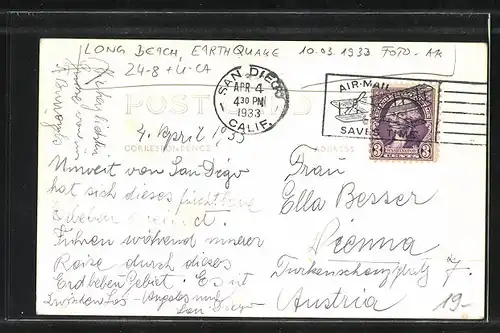 LONG BEACH, EARTHQUAKE 10.03.1933 FOTO-AK
24-8 + U-CA
SAN DIEGO
APR 4
4 30 PM
1933
CALIF.
AIR MAIL
SAVES TIME
3 3
POST CARD
CORRESPONDENCE
ADDRESS
4. April 1933
Unweit von San Diego
hat sich dieses furchtbare
Fuhren während unserer
Reise durch dieses
Erdbeben Gebiet. Es ist
Zwischen Los-Angeles und
San Diego
Frau
Ella Besser
Vienna
Turkenschanzplatz 7.
Austria
19-